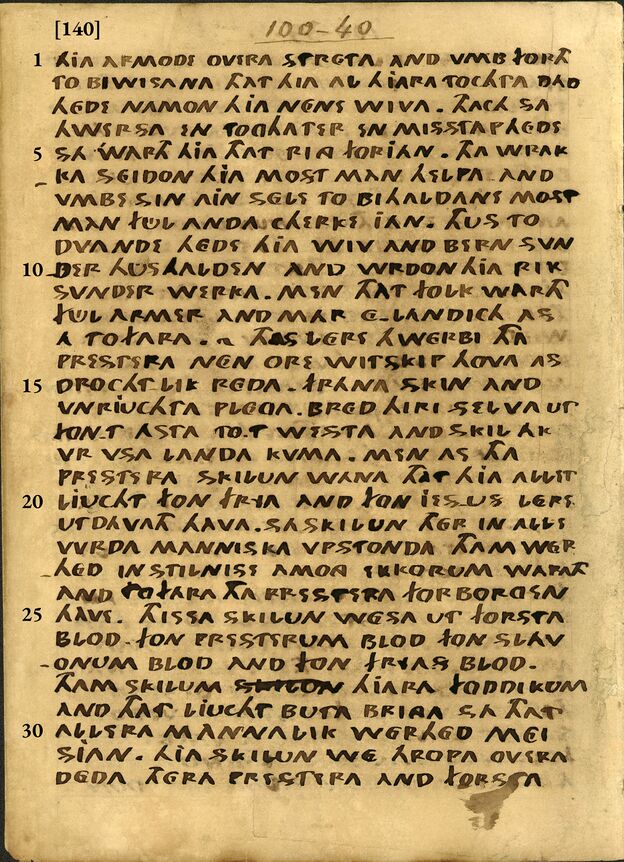 [140] 100-40
1 HJA ARMODE OVERA STRETA AND VMB FORTH
TO BIWISANA THAT HJA AL HJARA TOCHTA DAD
HEDE NAMON HJA NENE WIVA. THACH SA
HWERSA EN TOGHATER EN MISSTAP HEDE
5 SA WARTH HJA THAT RIA FORJAN. THA WRAK
KA SEIDON HJA MOST MAN HELPA AND
VMBE SIN AIN SELE TO BIHALDANE MOST
MAN FUL ANDA CHERKE JAN. THUS TO
DVANDE HEDE HJA WIV AND BERN SVN
10 DER HUSHALDEN AND WRDON HJA RIK
SVNDER WERKA. MEN THAT FOLK WARTH
FUL ARMER AND MAR E-LANDICH AS
A TO FARA. THAS LERE HWERBI THA
PRESTERA NEN ORE WITSKIP HOVA AS
15 DROCHTLIK REDA. FRANA SKIN AND
VNRJUCHTA PLEGA. BRED HIRI SELVA UT
FON.T ASTA TO.T WESTA AND SKIL AK
VR VSA LANDA KUMA. MEN AS THA
PRESTERA SKILUN WANA THAT HJA ALLET
20 LJUCHT FON FRYA AND FON JES_US LERE
UTDAVATH HAVA. SA SKILUN THER IN ALLE
VVRDA MANNISKA VPSTONDA THAM WER
HED IN STILNISE AMONG EKKORUM WARATH
AND TOFARA THA PRESTERA FORBORGEN
25 HAVE. THISSA SKILUN WESA UT FORSTA
BLOD. FON PRESTERUM BLOD FON SLAV
ONUM BLOD AND FON FRYAS BLOD.
THAM SKILUM HJARA FODDIKUM
AND THAT LJUCHT BUTA BRINGA SA THAT
30 ALLERA MANNALIK WERHED MEI
SJAN. HJA SKILUN WE HROPA OVERA
DEDA THERA PRESTERA AND FORSTA